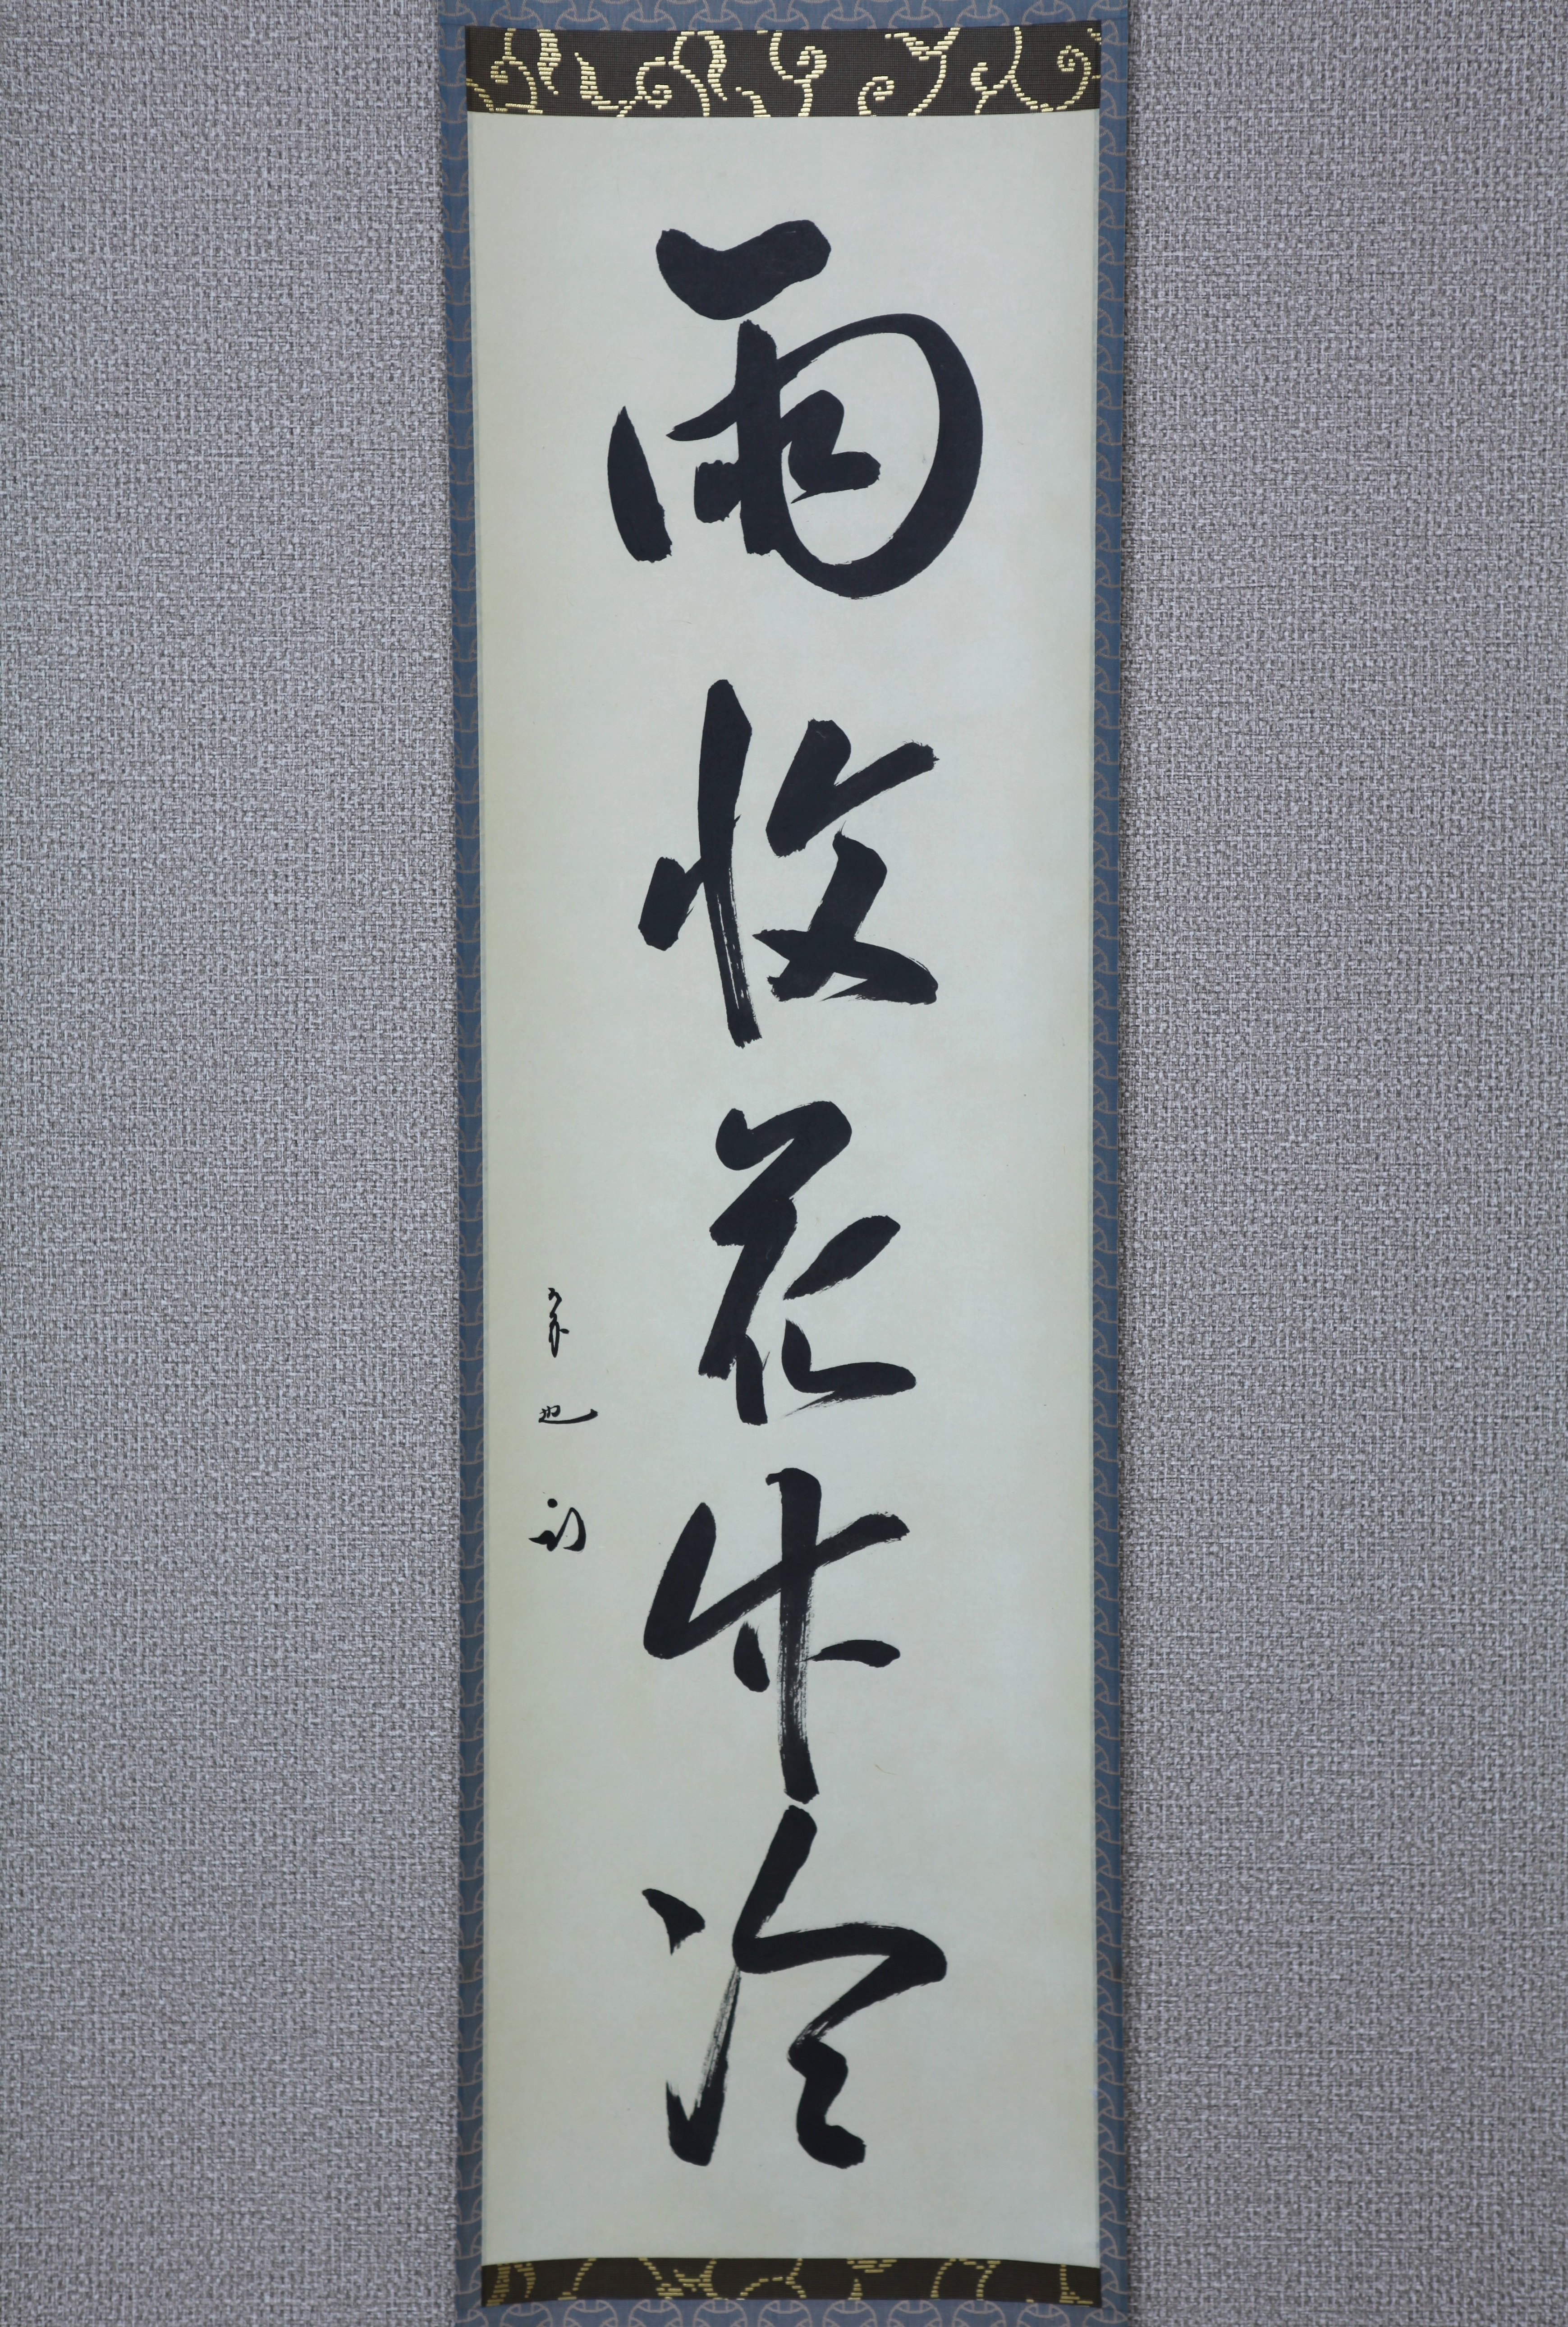 雨收花竹冷